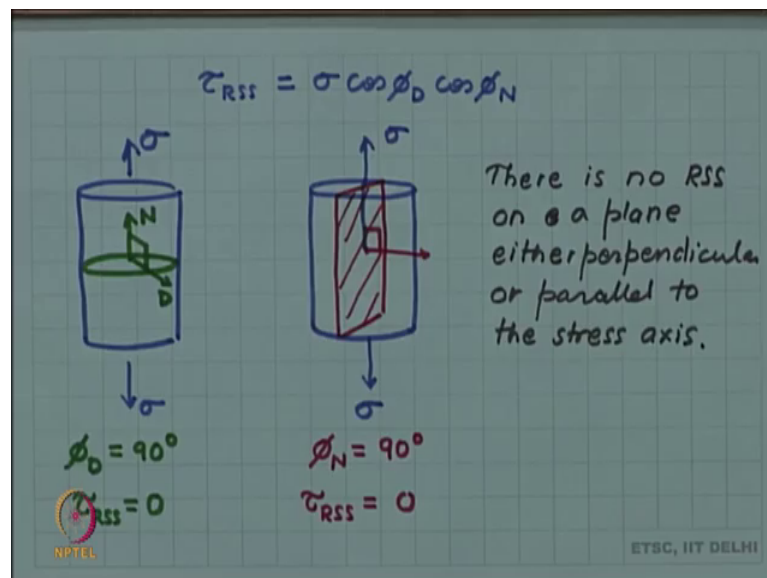 τ_RSS = σ cos ϕ_D cos ϕ_N
σ
N
D
σ
ϕ_D = 90°
τ_RSS = 0
σ
σ
ϕ_N = 90°
τ_RSS = 0
There is no RSS
on a plane
either perpendicular
or parallel to
the stress axis.
NPTEL
ETSC, IIT DELHI